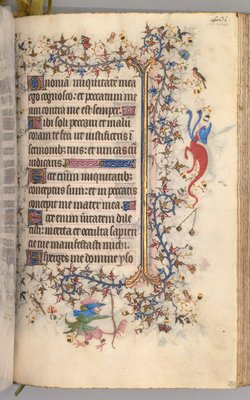 Quoniam iniquitatē mea
ego cognosco: et peccatum me
um contra me est semper.
Tibi soli peccaui et malū
coram te feci: ut iustificeris ī
sermonib; tuis: et uincas cū
iudicaris
Ecce enim iniquitatib;
conceptus sum: et in peccatis
concepit me mater mea.
Ecce enim ūitatem dile
xisti: incerta et occulta sapien
tie tue manifestasti michi.
Asperges me domine yso